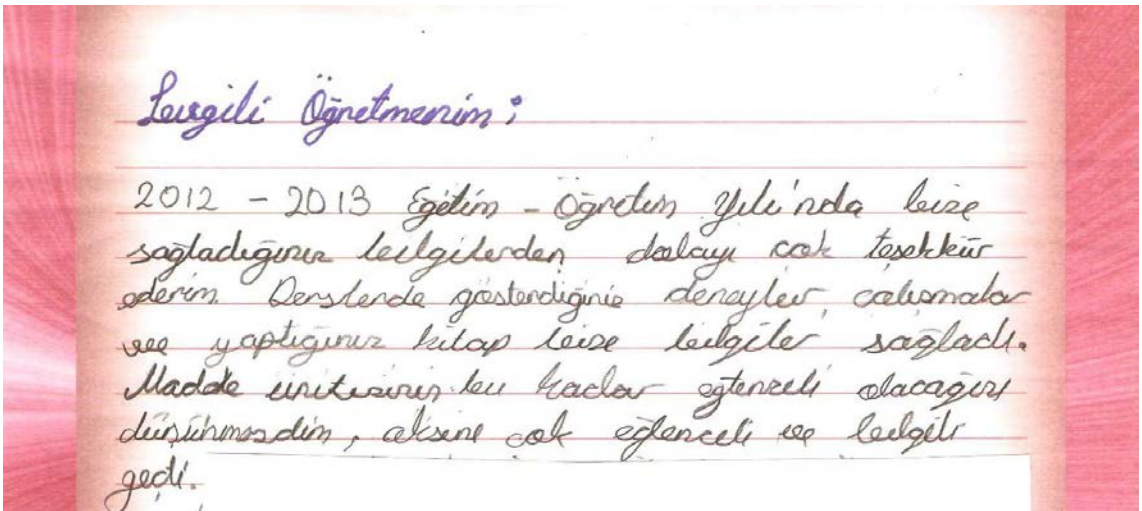 Sevgili Öğretmenim;
2012 - 2013 Eğitim - Öğretim Yılı'nda bize
sağladığınız bilgilerden dolayı çok teşekkür
ederim. Derslerde gösterdiğiniz deneyler, çalışmalar
ve yaptığınız kitap bize bilgiler sağladı.
Madde ünitesinin bu kadar eğlenceli olacağını
düşünmezdim, aksine çok eğlenceli ve bilgili
geçti.